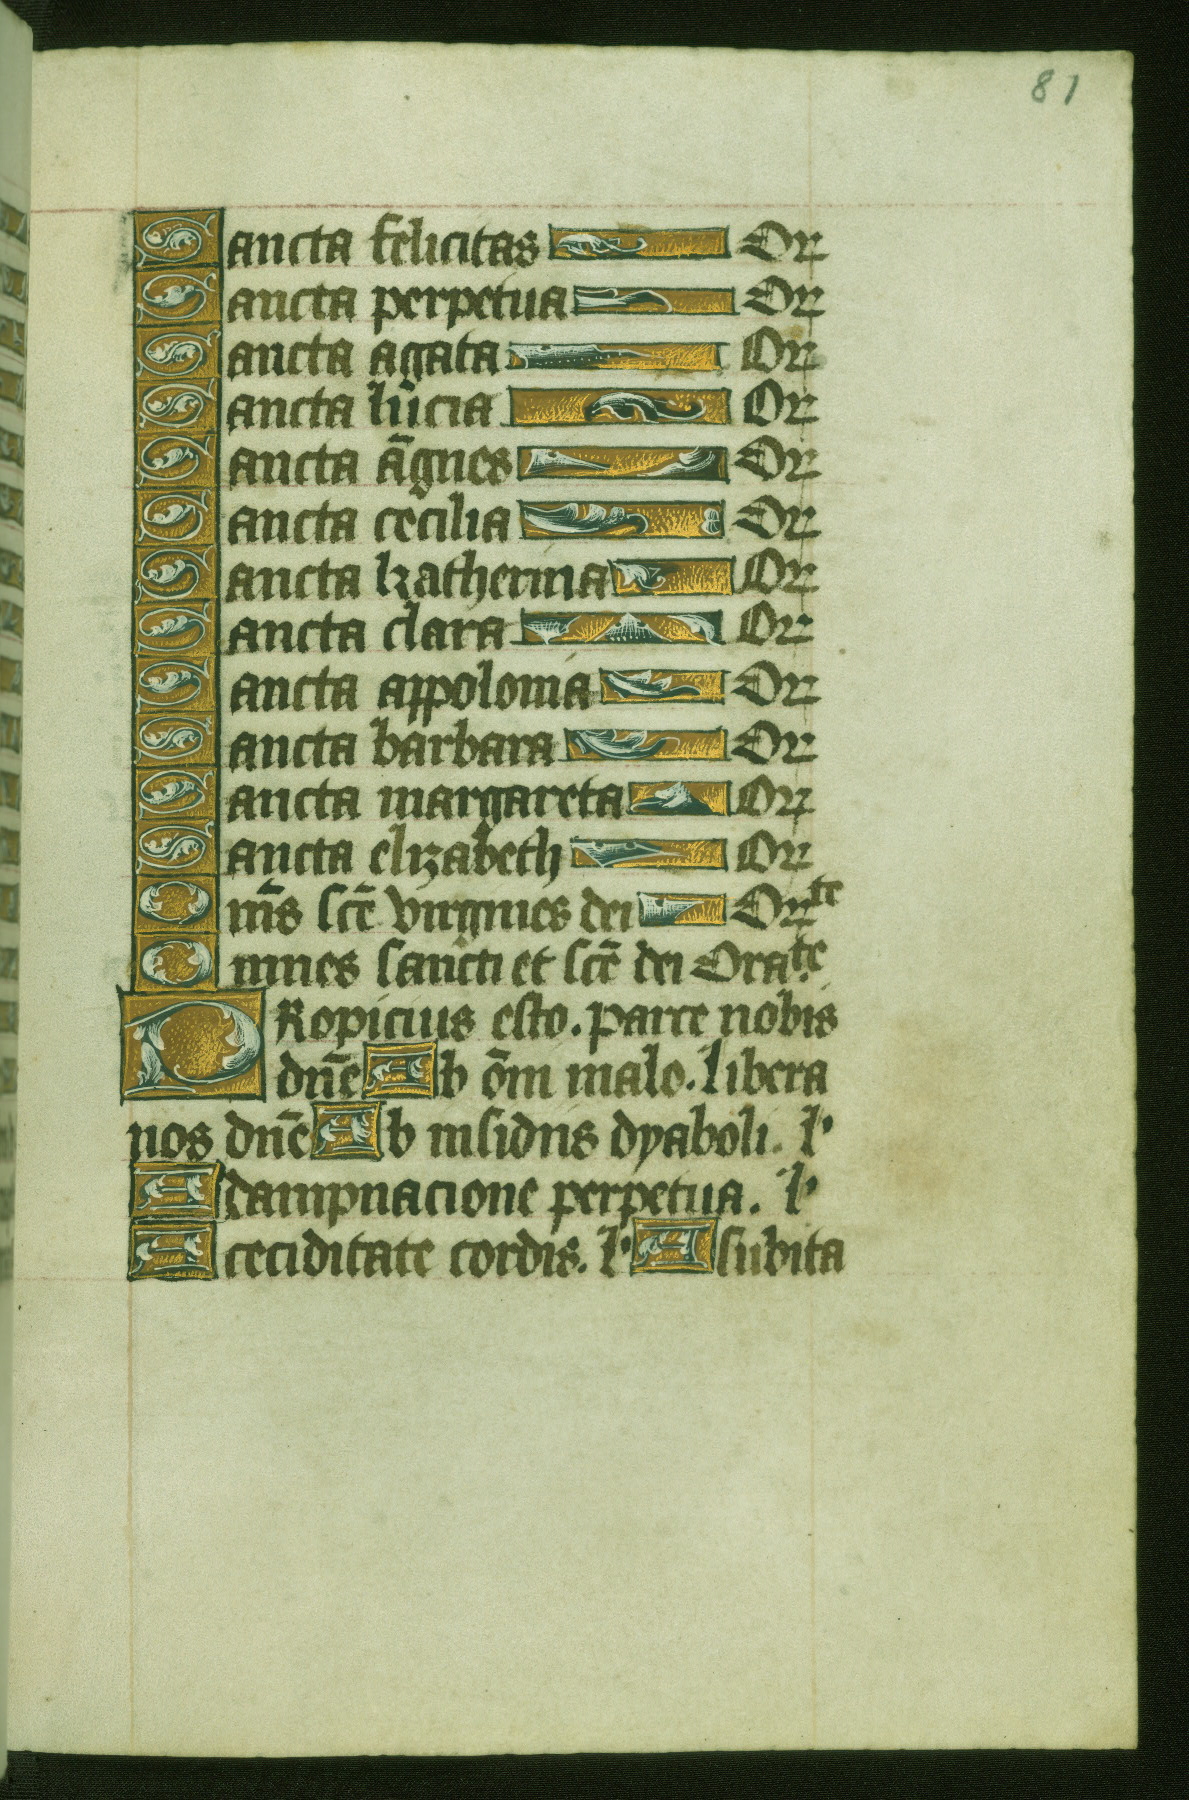 81
Sancta felicitas Or
Sancta perpetua Or
Sancta agata Or
Sancta lucia Or
Sancta āgnes Or
Sancta cecilia Or
Sancta katherina Or
Sancta clara Or
Sancta appolonia Or
Sancta barbara Or
Sancta margareta Or
Sancta elizabeth Or
Om̄s sc̄e virgines dei Orte
Omnes sancti et sc̄e dei Orate.
PRopicius esto. parce nobis
dn̄e Ab om̄i malo. libera
nos dn̄e Ab insidiis dyaboli. l'
A dampnacione perpetua. l'
A ceciditate cordis. l' A subita